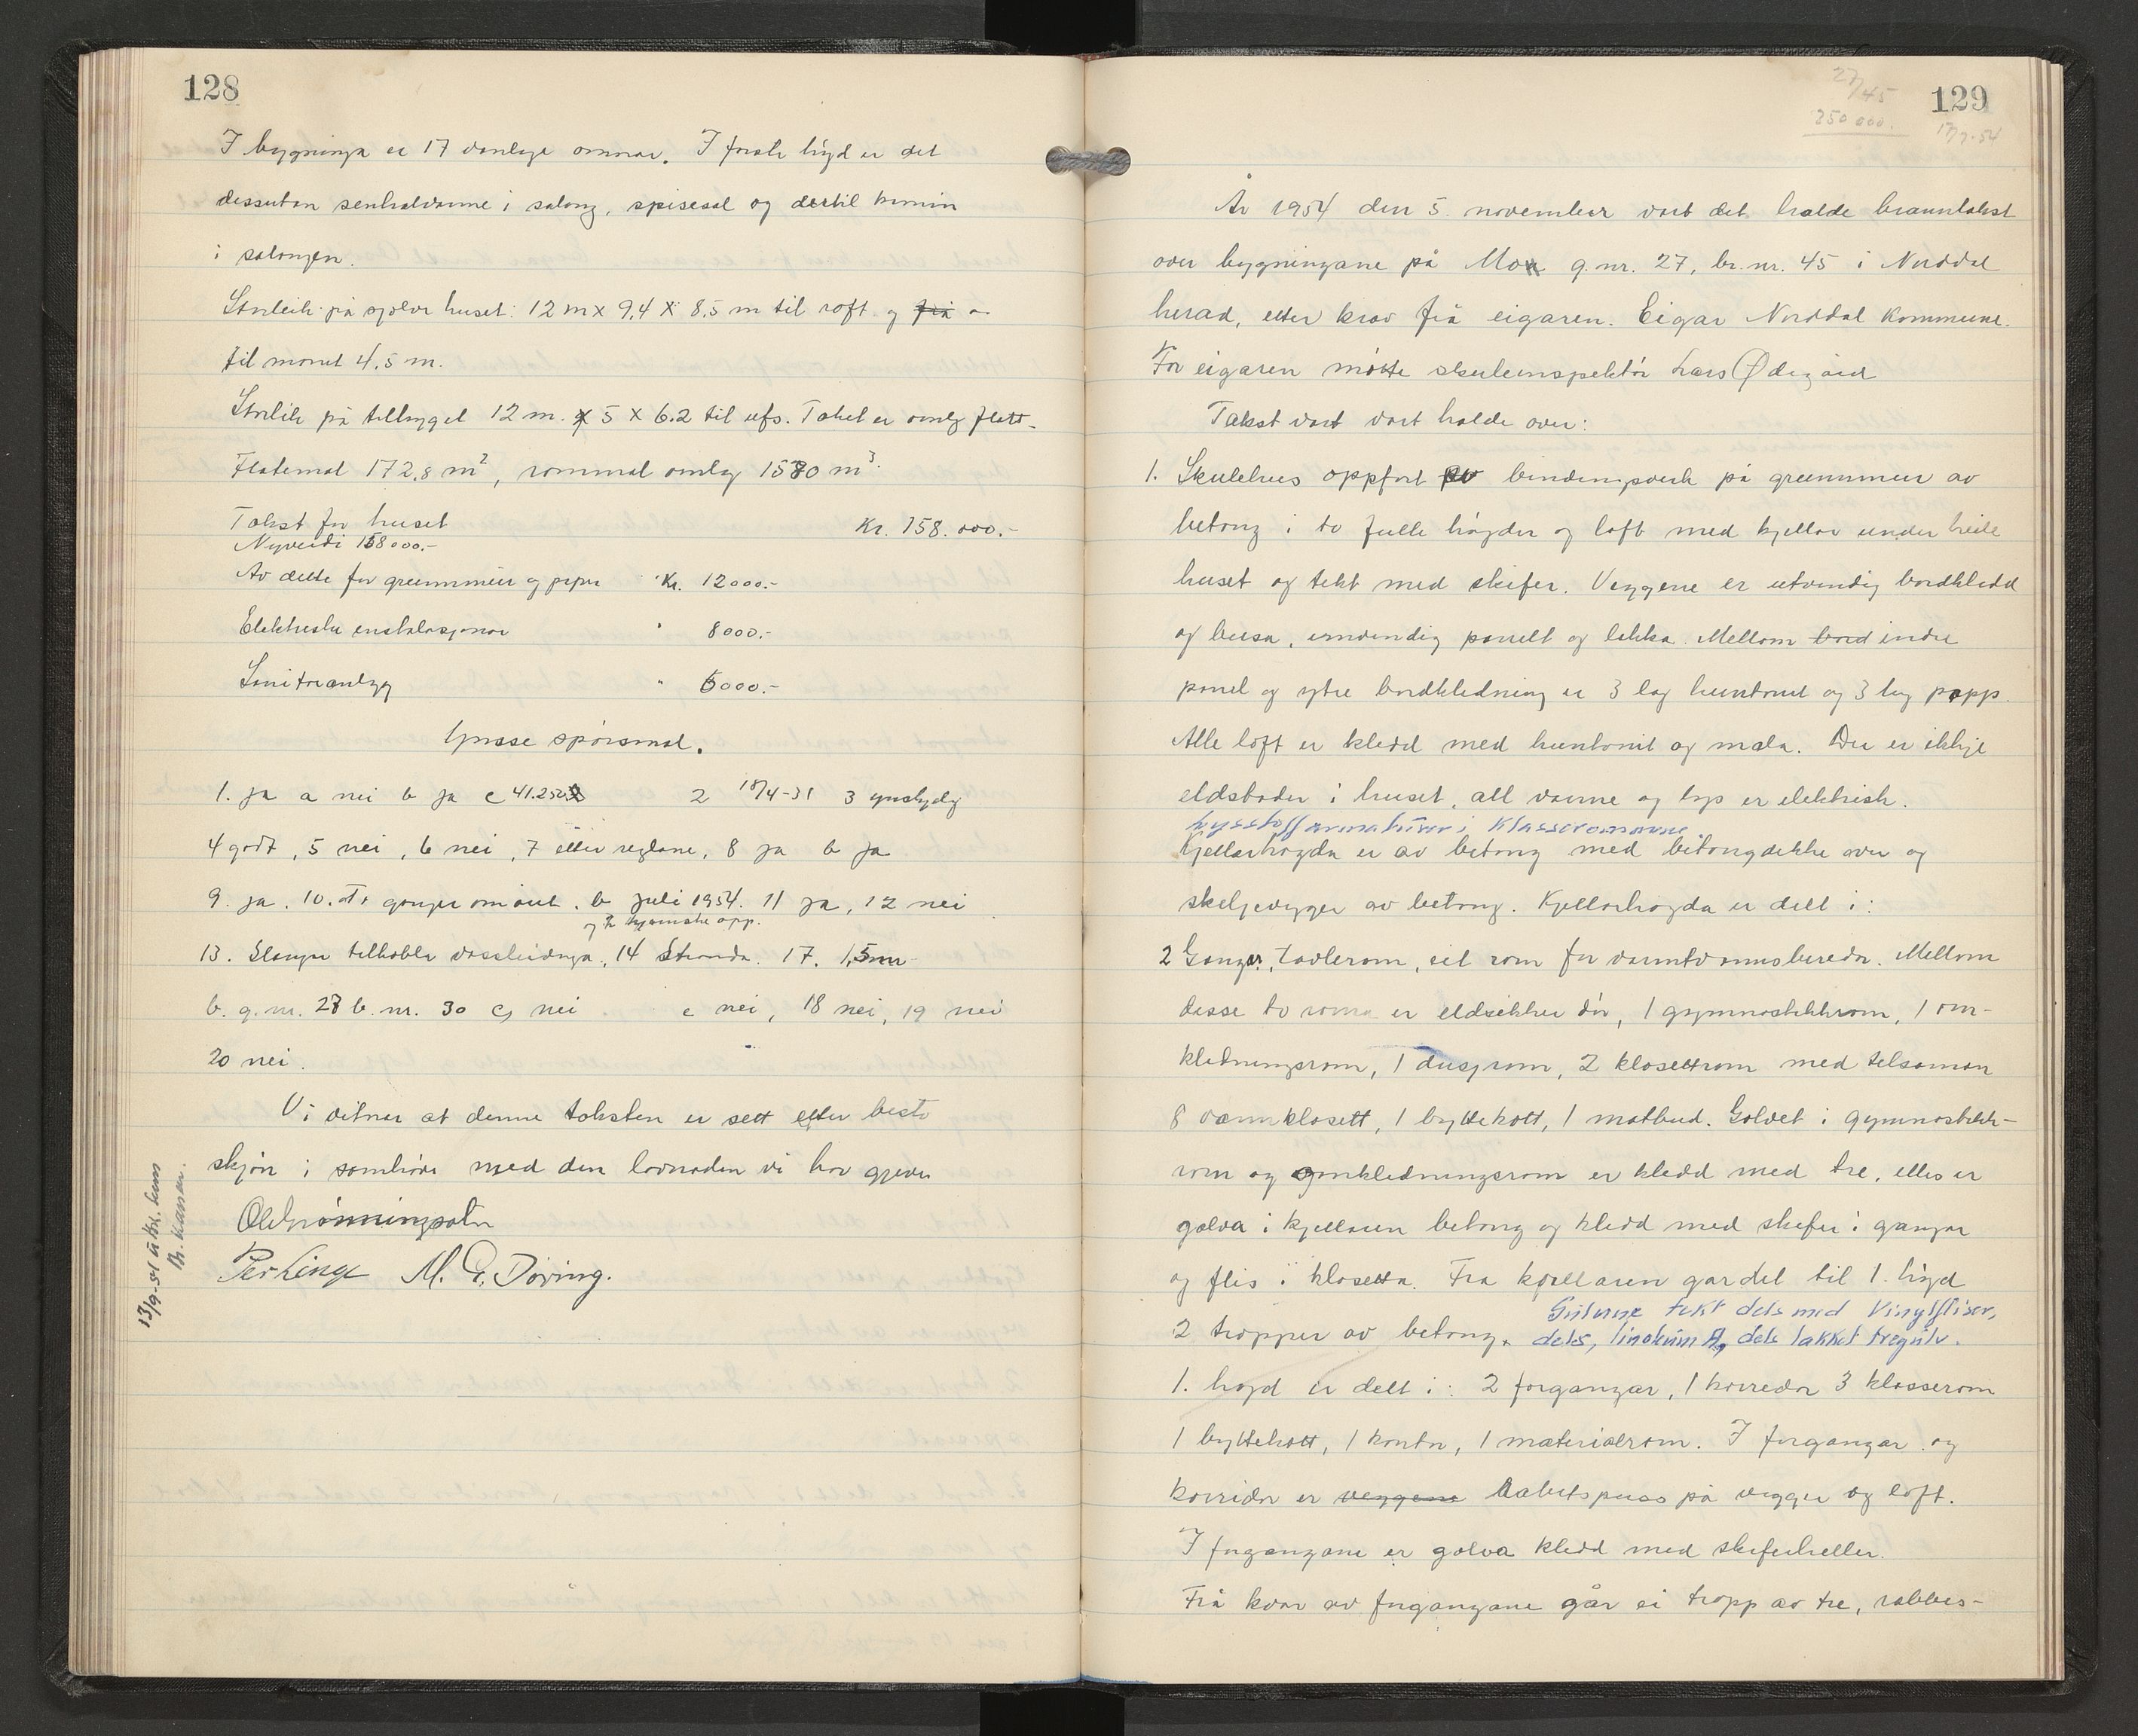 128
I bygninga er 17 vanlege omnar. I fyrste høgd er det
dessutan sentralvarme i salong, spisesal og dertil kamin
i salongen.
Storleik på sjølve huset: 12 m x 9,4 x 8,5 m til roft og frå
til mønet 4,5 m.
Storleik på tilbygget 12 m. x 5 x 6.2 til ufs. Taket er omlag flatt.
Flatemål 172,8 m², rommål omlag 1580 m³.
Takst for huset Kr. 158.000.-
Nyverdi 158000.-
Av dette for grunnmur og piper Kr. 12000.-
Elektriske installasjonar " 8000.-
Sanitæranlegg " 6000.-
Ymse spørsmål.
1. ja a nei b ja c 41.250 2 18/4-31 3 ymskyldig
4 godt, 5 nei, 6 nei, 7 etter reglane, 8 ja b ja
9. ja. 10. a. gonger om året. b juli 1954. 11 ja, 12 nei
og 2 kjemiske app.
13. Slange tilkobla vassleidnga, 14 Stranda. 17. 1,5 m
b. g.nr. 27 b.nr. 30 c, nei c nei, 18 nei, 19 nei
20 nei.
Vi vitnar at denne taksten er sett etter beste
skjøn i samhøve med den lovnaden vi har gjeve.
Ole Rønningsætr
Per Linge M. G. Døving.
129
27/45
250 000.
17/7-54
År 1954 den 5. november vart det halde branntakst
over bygningane på Mo g.nr. 27, br.nr. 45 i Norddal
herad, etter krav frå eigaren. Eigar Norddal kommune.
For eigaren møtte skuleinspektør Lars Ødegård
Takst vart vart halde over:
1. Skulehus oppført av bindingsverk på grunnmur av
betong i to fulle høgder og loft med kjellar under heile
huset og tekt med skifer. Veggene er utvendig bordkledd
og beisa, innvendig panelt og lakka. Mellom bord indre
panel og ytre bordkledning er 3 lag huntonit og 3 lag papp.
Alle loft er kledd med huntonit og mala. Der er ikkje
eldstader i huset, all varme og lys er elektrisk.
Lysstoffarmaturer i klasseromene.
Kjellarhøgda er av betong med betongdekke over og
skeljevegger av betong. Kjellarhøgda er delt i:
2 Gangar, tavlerom, eit rom for varmtvannsberedar. Mellom
desse to romma er eldsikker dør, 1 gymnastikkrom, 1 om-
kledningsrom, 1 dusjrom, 2 klosettrom med tilsaman
8 vannklosett, 1 byttekott, 1 matbud. Golvet i gymnastikk-
rom og omkledningsrom er kledd med tre, elles er
golva i kjellaren betong og kledd med skifer i gangar
og flis i klosetta. Fra kjellaren gar det til 1. høgd
2 trapper av betong. Golvene tekt dels med Vinylfliser,
dels, linoleum og dels lakket tregulv.
1. høgd er delt i: 2 forgangar, 1 korredor 3 klasserom
1 byttekott, 1 kontor, 1 materialrom. I forgangar og
korridor er veggene Rabitspuss på vegger og loft.
I forgangane er golva kledd med skiferheller.
Frå kvar av forgangane går ei trapp av tre, rabbes-